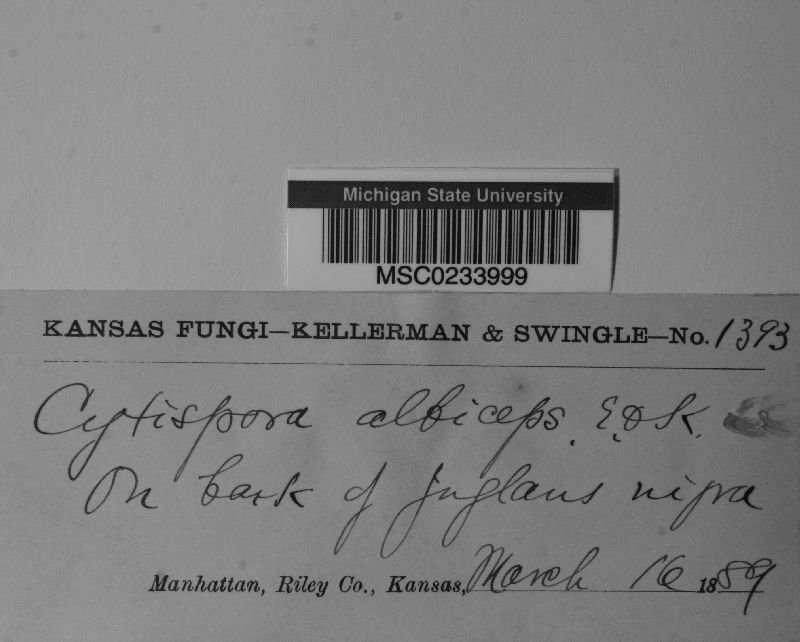 Michigan State University
MSC0233999
KANSAS FUNGI—KELLERMAN & SWINGLE—No. 1393
Cytispora albiceps. E. & K.
On bark of Juglans nigra
Manhattan, Riley Co., Kansas, March 16 1889